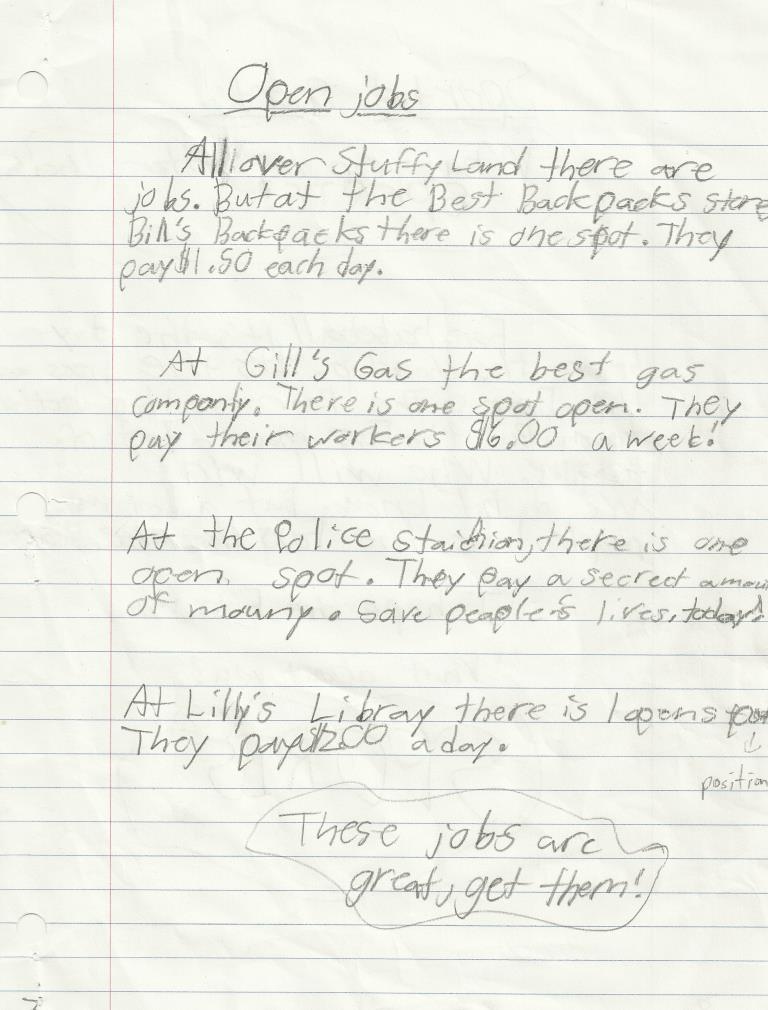 Open jobs
All over Stuffy Land there are
jobs. But at the Best Backpacks store
Bill's Backpacks there is one spot. They
pay $1.50 each day.
At Gill's Gas the best gas
company. There is one spot open. They
pay their workers $6.00 a week!
At the Police staichion, there is one
open spot. They pay a secret amou
of mouny. Save people's lives, today!
At Lilly's Libray there is 1 open spot
They pay $1200 a day.
position
These jobs are
great, get them!